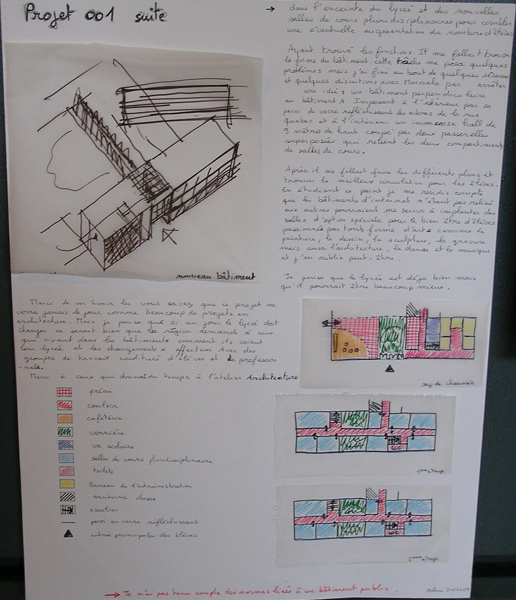 Projet 001 suite
→ dans l'enceinte du lycée et des nouvelles
salles de cours pluridisciplinaires pour combler
une éventuelle augmentation du nombre d'élèves.
Ayant trouvé les fonctions. Il me fallait trouver
la forme du bâtiment cette me posa quelques
problèmes mais j'ai fini au bout de quelques séances
et quelques discutions avec Marcelo par arrêter
une idée: un bâtiment perpendiculaire
au bâtiment A. Imposant à l'extérieur par sa
paroi de verre réfléchissant les arbres de la rue
et à l'intérieur un immense hall de
9 mètres de haut coupé par deux passerelles
superposées qui relient les deux compartiments
de salles de cours.
Après il me fallait faire les différents plans et
trouver la meilleure circulation pour les élèves.
En étudiant ce point je me rendis compte
que les bâtiments d'internat n'étant pas relié
aux autres pourraient me servir à implanter des
salles d'option spéciale pour le bien être d'élèves
passionnés par toute forme d'arts comme la
peinture, le dessin, la sculpture, la gravure
mais aussi l'architecture, la danse et la musique
et j'en oublie peut-être.
Je pense que le lycée est déjà bien mais
qu'il pourrait être beaucoup mieux.
nouveau bâtiment
Merci de m'avoir lu vous savez que ce projet ne
verra jamais le jour comme beaucoup de projets en
architecture. Mais je pense que si un jour le lycée doit
changer ce serait bien que la région demande à ceux
qui vivent dans les bâtiments comment ils voient
leur lycée et les changements à effectuer avec des
groupes de travail constitué d'élèves et de profession
-nels.
Merci à ceux qui donnent du temps à l'atelier Architecture
préau
couloir
cafétéria
verrière
vie scolaire
salles de cours pluridisciplinaire
toilets
bureau de l'administration
ancienne classe
escalier
paroi en verre réfléchissant
entrée principale des élèves
rez de chaussée
1er étage
2ème étage
→ Je n'ai pas tenu compte des normes liées à un bâtiment public.